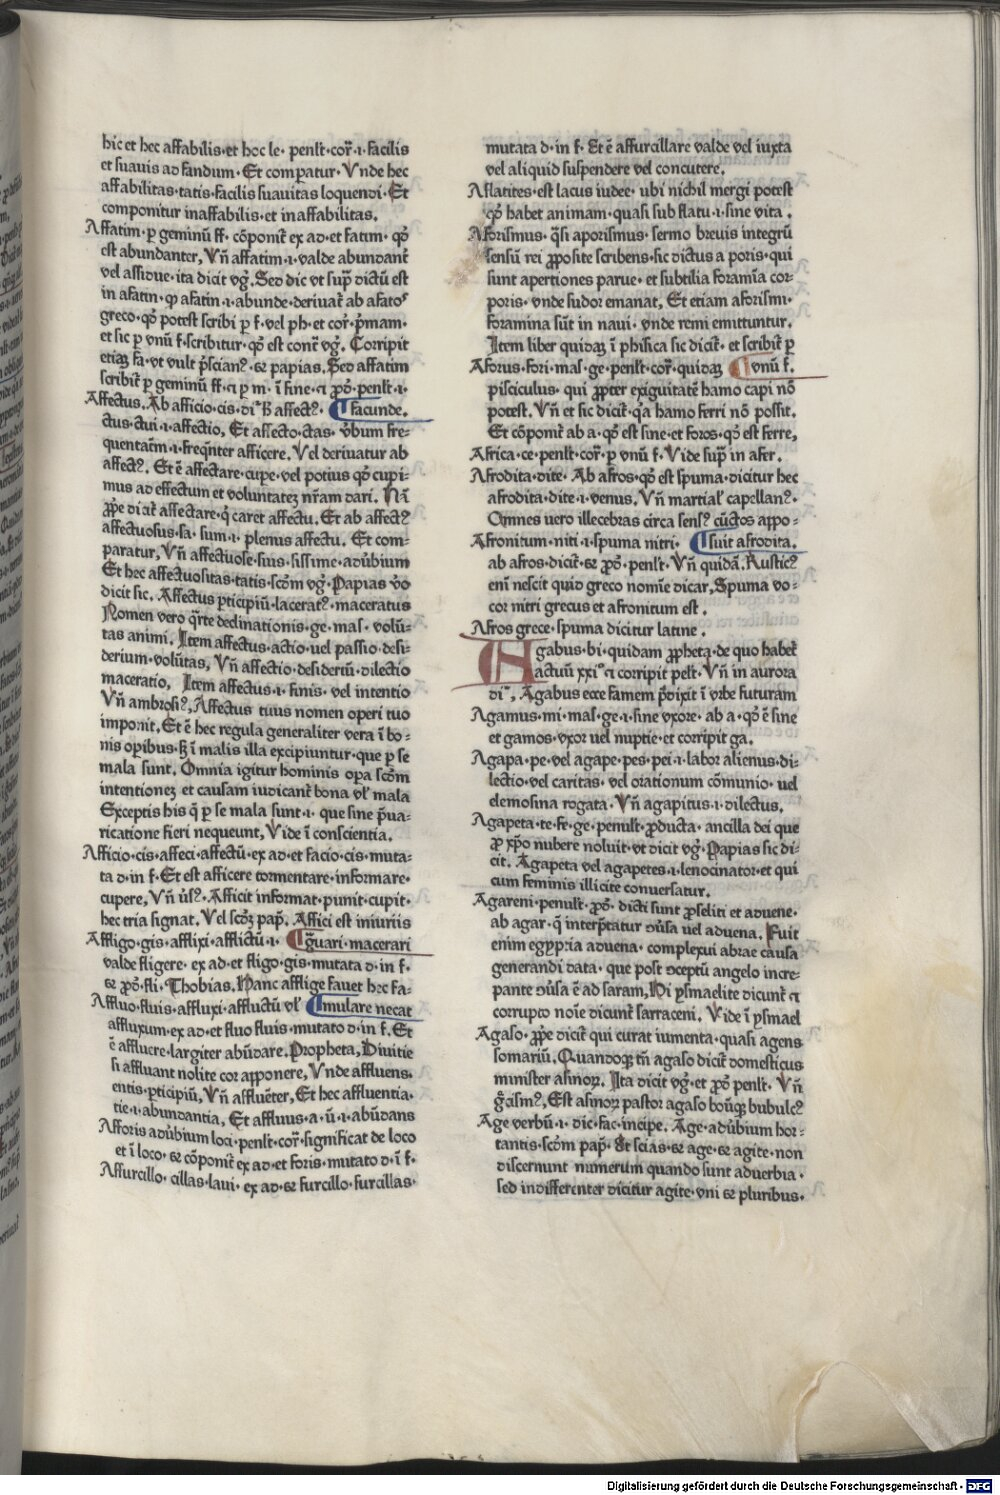 hic et hec affabilis·et hoc le· penl̃t·cor̃·i·facilis
et suauis ad fandum· Et comparatur· Vnde hec
affabilitas·tatis·facilis suauitas loquendi· Et
componitur inaffabilis·et inaffabilitas.
Affatim·ꝑ geminũ ff· cõponit̃ ex ad·et fatim· qđ
est abundanter, Vñ affatim·i·valde abundant̃
vel assidue·ita dicit vg̃. Sed dic vt sup̃ dictũ est
in afatin·ꝙ afatin·i·abunde·deriuat̃ ab afatos
greco·qđ potest scribi ꝑ f·vel ph·et cor̃·p̃mam·
et sic ꝑ vnũ f·scribitur·qđ est cont̃ vg̃. Corripit
etiaꝫ fa·vt vult p̃scian?·et papias. Sed affatim
scribit̃ ꝑ geminũ ff·et ꝑ m·ĩ fine·et ꝓđ·penl̃t·i·
Affectus. Ab afficio·cis·di· hic affect?· ¶facunde.
ctus·ctui·i·affectio, Et affecto·ctas· ṽbum fre-
quentatim·i·freq̃nter afficere. Vel deriuatur ab
affect?. Et ẽ affectare·cupe·vel potius qđ cupi-
mus ad effectum et voluntateꝫ nr̃am dari. Nã
ꝓpe dicit̃ affectare·q̃ caret affectu. Et ab affect?
affectuosus·sa·sum·i·plenus affectu. Et com-
paratur, Vñ affectuose·sius·sissime·adũbium
Et hec affectuositas·tatis·scđm vg̃·Papias ṽo
dicit sic. Affectus ꝑticipiũ·lacerat?·maceratus
Nomen vero q̃rte declinationis·ge·mas· volũ-
tas animi. Item affectus·actio·uel passio·desi-
derium·volũtas, Vñ affectio·desideriũ·dilectio
maceratio, Item affectus·i·finis·vel intentio
Vñ ambrosi?, Affectus tuus nomen operi tuo
imponit. Et ẽ hec regula generaliter vera ĩ bo-
nis opibus· ĩ malis illa excipiuntur·que ꝑ se
mala sunt. Omnia igitur hominis opa scđm
intentioneꝫ et causam iudicant̃ bona vl̃ mala
Exceptis his q̃ ꝑ se mala sunt·i·que sine p̃ua-
ricatione fieri nequeunt, Vide ĩ conscientia.
Afficio·cis·affeci·affectũ·ex ad·et facio·cis·muta-
ta d·in f·Et est afficere tormentare·informare·
cupere, Vñ ũs?·Afficit informat·punit·cupit·
hec tria signat. Vel scđꝫ pap̃. Affici est iniuriis
Affligo·gis·afflixi·afflictũ·i· ¶g̃uari·macerari
valde fligere· ex ad·et fligo·gis·mutata d·in f·
et ꝓđ·fli·Thobias. Nanc afflige fauet hec fa-
Affluo·fluis·affluxi·affluctũ vl̃ ¶mulare necat
affluxum·ex ad·et fluo fluis·mutato d·in f. Et
ẽ affluere·largiter abũdare. Propheta, Diuitie
si affluant nolite cor apponere, Vnde affluens·
entis·ꝑticipiũ, Vñ affluẽter, Et hec affluentia·
tie·i·abundantia, Et affluus·a·ũ·i·abũdans
Afforis adũbium loci·penl̃t·cor̃·significat de loco
et ĩ loco·et cõponit̃ ex ad·et foris·mutato d·ĩ f·
Affurcillo· cillas·laui· ex ad·et furcillo·furcillas·
mutata d·in f· Et ẽ affurcillare valde vel iuxta
vel aliquid suspendere vel concutere.
Aflatites·est lacus iudee· ubi nichil mergi potest
qđ habet animam·quasi sub flatu·i·sine vita.
Aforismus·q̃si aporismus·sermo brevis integrũ
sensũ rei ꝓposite scribens·sic dictus a poris·qui
sunt apertiones parue·et subtilia foramĩa cor-
poris·vnde sudor emanat, Et etiam aforismi·
foramina sũt in naui·vnde remi emittuntur.
Item liber quidaꝫ ĩ phisica sic dicit̃·et scribit̃ ꝑ
Aforus·fori·mas·ge·penl̃t·cor̃·quidaꝫ ¶vnũ f.
pisciculus· qui ꝓpter exiguitatẽ hamo capi nõ
potest. Vñ et sic dicit̃·q̃a hamo ferri nõ possit.
Et cõponit̃ ab a·qđ est sine·et foros·qđ est ferre,
Africa·ce·penl̃t·cor̃·ꝑ vnũ f. Vide sup̃ in afer.
Afrodita·dite· Ab afros·qđ est spuma·dicitur hec
afrodita·dite·i·venus. Vñ martial? capellan?·
Omnes uero illecebras circa sens? cũctos appo-
Afronitum·niti·i·spuma nitri· ¶suit afrodita.
ab afros·dicit̃·et ꝓđ·penl̃t·Vñ quidã. Rustic?
eni̇ nescit quid greco nomĩe dicar, Spuma vo-
cor nitri grecus et afronitum est.
Afros grece·spuma dicitur latine.
Agabus·bi·quidam ꝓpheta·de quo habet̃
actuũ xxi·et corripit pelt̃·Vñ in aurora
di, Agabus ecce famem p̃dixit ĩ vrbe futuram
Agamus·mi·mas·ge·i·sine vxore· ab a·qđ ẽ sine
et gamos·vxor uel nuptie·et corripit ga.
Agapa·pe·vel agape·pes·pei·i·labor alienus·di-
lectio·vel caritas· vel orationum cõmunio· uel
elemosina rogata· Vñ agapitus·i·dilectus.
Agapeta·te·fe·ge·penult̃·ꝓducta· ancilla dei que
ꝓ xp̃o nubere noluit·vt dicit vg̃·Papias sic di-
cit. Agapeta vel agapetes·i·lenocinator·et qui
cum feminis illicite conversatur.
Agareni·penult̃·ꝓđ· dicti sunt ꝓseliti et aduene·
ab agar·q̃ interp̃tatur ↄũsa uel aduena. Fuit
enim egyptia aduena· complexui abrae causa
generandi data· que post ↄceptũ angelo incre-
pante ↄũsa ẽ ad saram, Hi ysmaelite dicunt̃ et
corrupto noĩe dicunt̃ sarraceni. Vide ĩ ysmael
Agaso· ꝓpe dicit̃ qui curat iumenta·quasi agens
somariũ. Quandoqꝫ tñ agaso dicit̃ domesticus
minister asinoꝝ. Ita dicit vg̃·et ꝓđ penl̃t· Vñ
g̃cism?, Est asinoꝝ pastor agaso boũqꝫ bubulc?
Age verbũ·i· dic·fac·incipe. Age·adũbium hor-
tantis·scđm pap̃· Et scias·et age·et agite·non
discernunt numerum quando sunt aduerbia·
sed indifferenter dicitur agite·vni et pluribus.
Digitalisierung gefördert durch die Deutsche Forschungsgemeinschaft - DFG